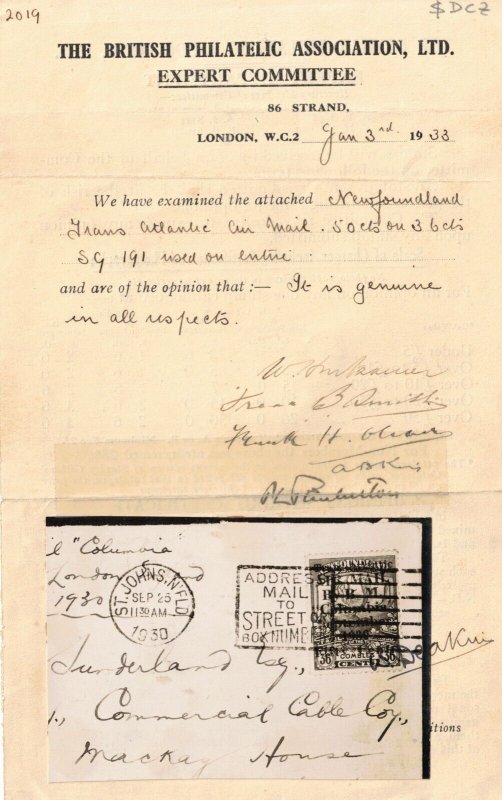 2019
$DCZ
THE BRITISH PHILATELIC ASSOCIATION, LTD.
EXPERT COMMITTEE
86 STRAND,
LONDON, W.C.2 Jan 3rd 1933
We have examined the attached Newfoundland
Trans Atlantic Air Mail. 50cts on 36cts
SG 191 used on entire
and are of the opinion that :— It is genuine
in all respects.
B Smith
Frank H. Oliver
"Columbia"
London
1930
ST. JOHN'S, NFLD
SEP 25
1130AM
1930
ADDRESS
MAIL
TO
STREET
BOX NUMB
AIR MAIL
Columbia
September
1930
Fifty Cents
36 36
CENTS
Sunderland Esq.,
Commercial Cable Coy.,
Mackay House
itions